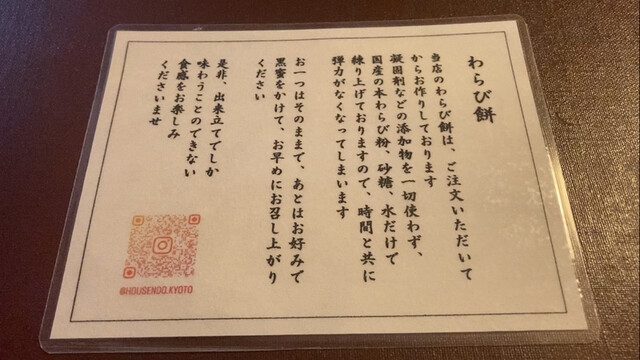 わらび餅
当店のわらび餅は、ご注文いただいて
からお作りしております
凝固剤などの添加物を一切使わず、
国産の本わらび粉、砂糖、水だけで
練り上げておりますので、時間と共に
弾力がなくなってしまいます
お一つはそのままで、あとはお好みで
黒蜜をかけて、お早めにお召し上がり
ください
是非、出来立てでしか
味わうことのできない
食感をお楽しみ
くださいませ
@HOUSENDO.KYOTO